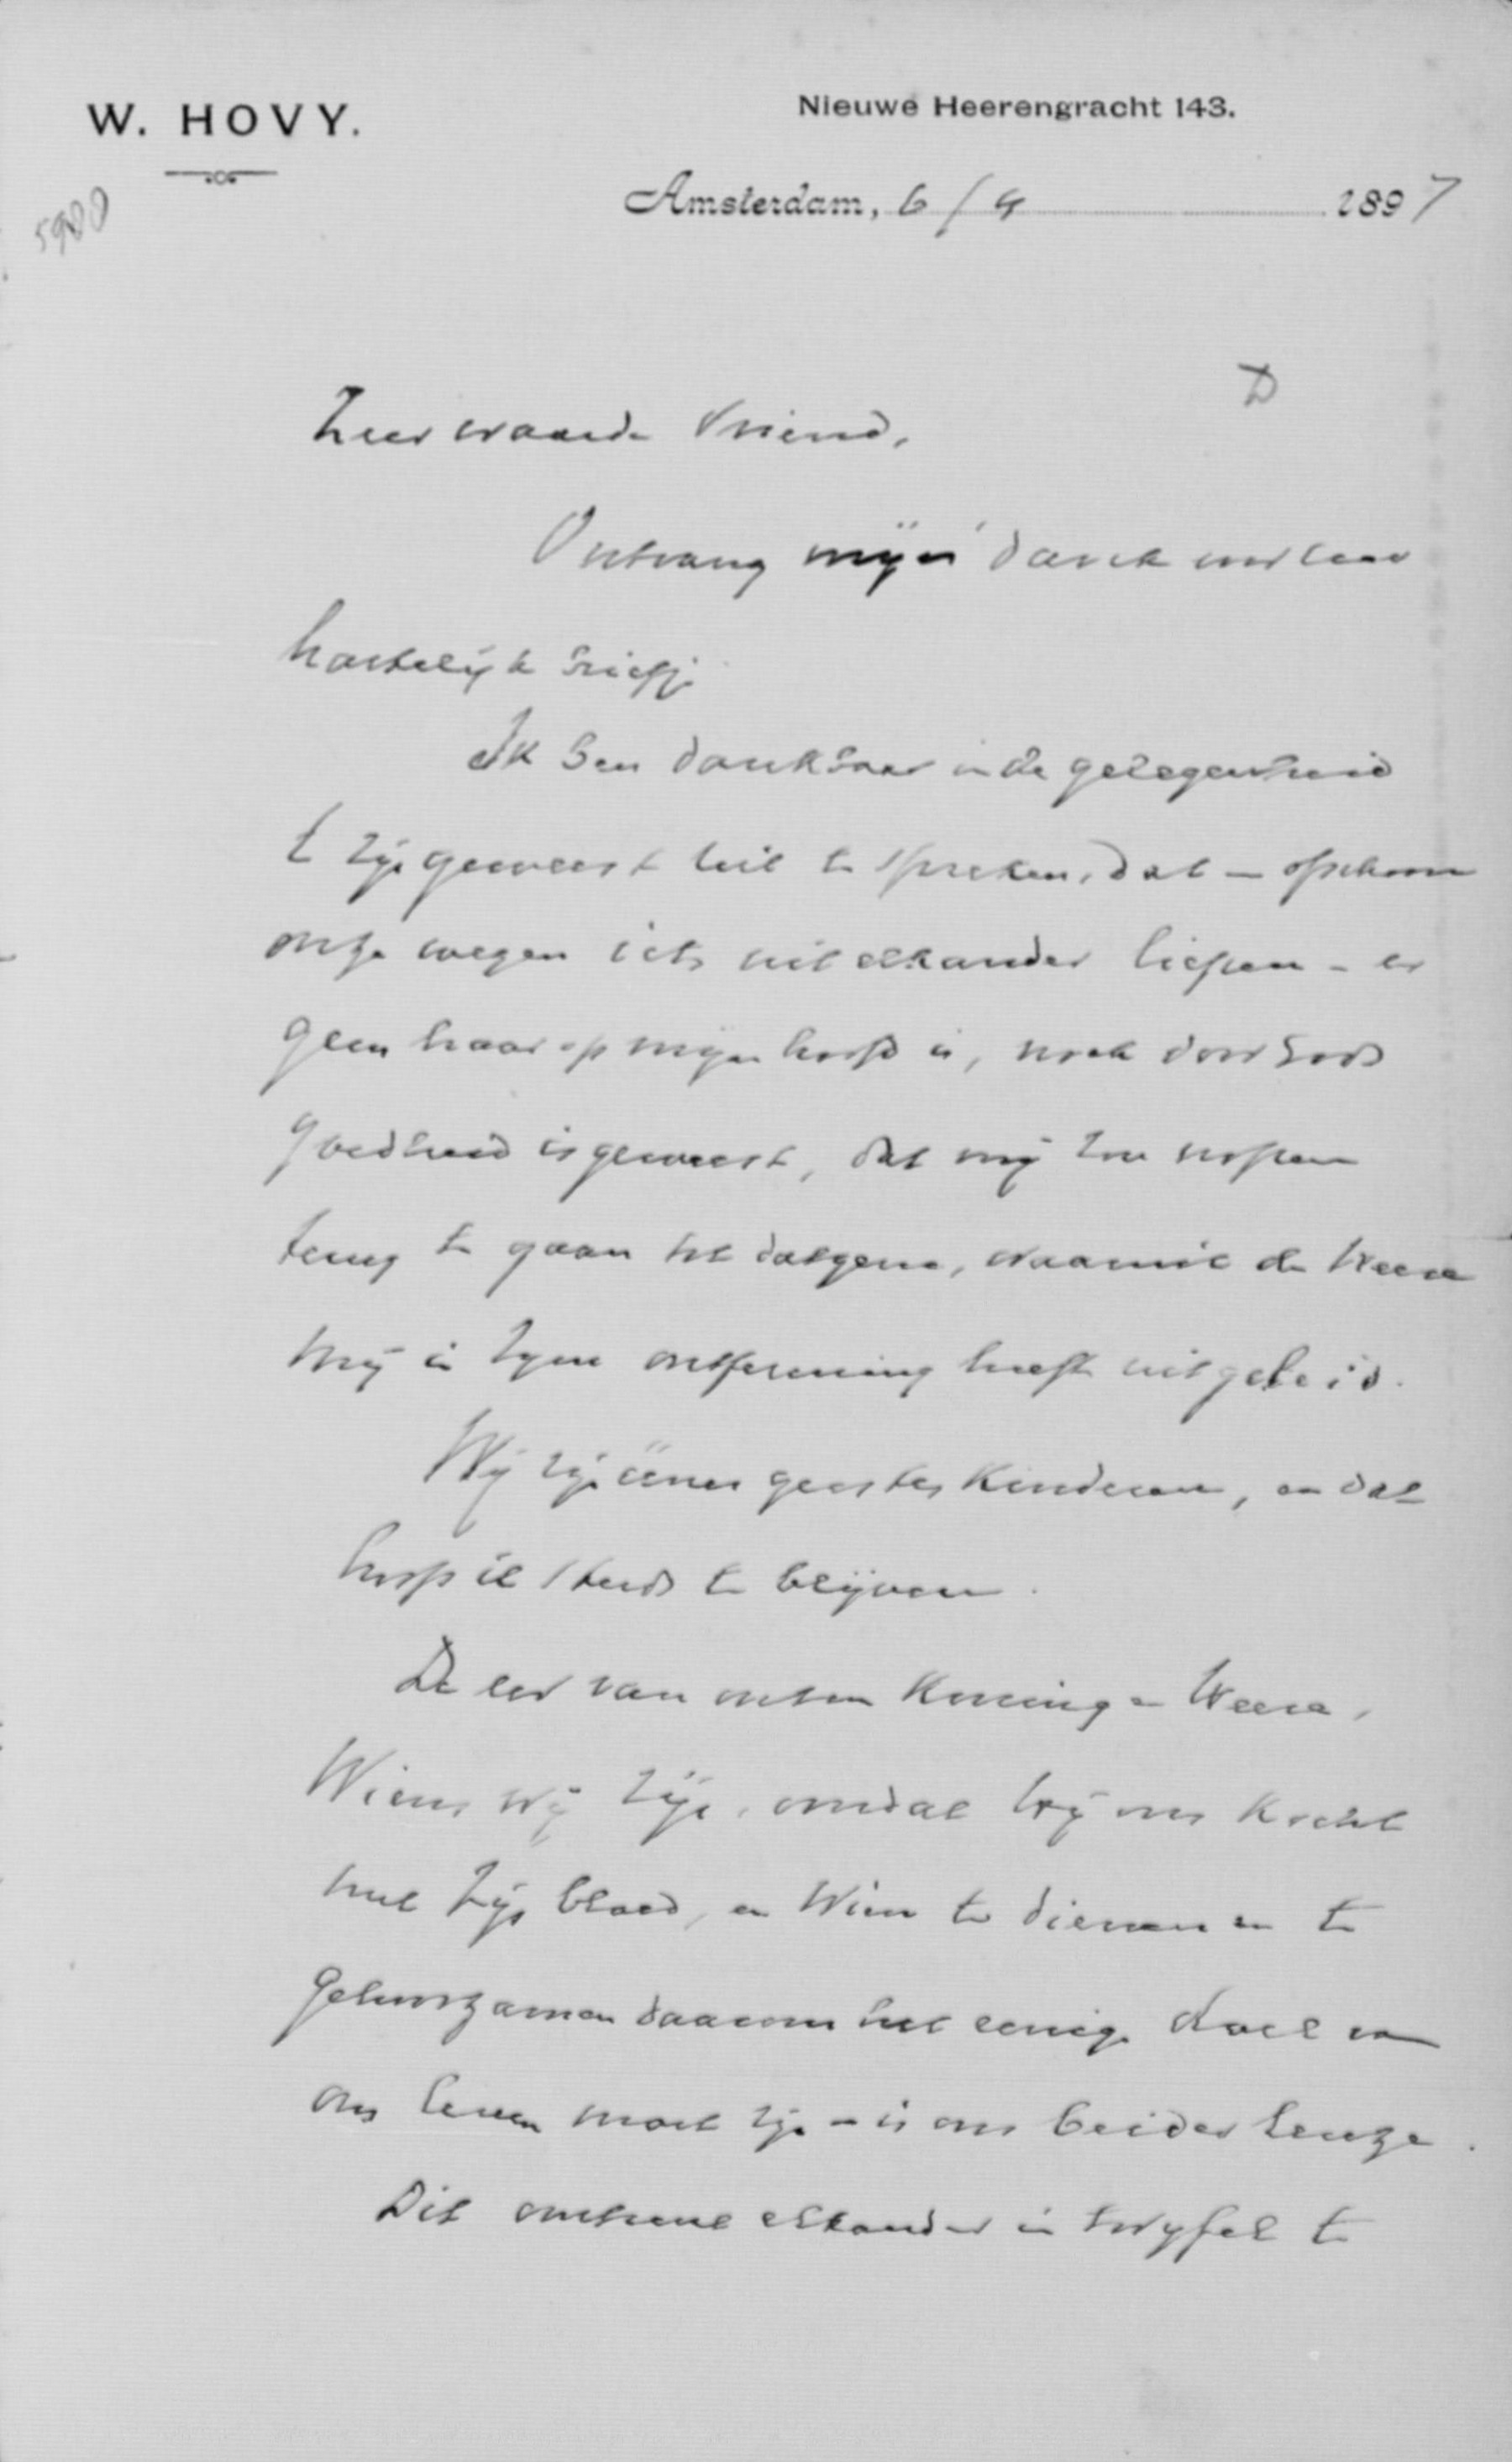 W. HOVY.
Nieuwe Heerengracht 143.
Amsterdam, 6/4 1897
5900
D
Zeer waarde Vriend,
Ontvang mijn dank voor Uw
hartelijk briefje
Ik ben dankbaar in de gelegenheid
te zijn geweest uit te spreken, dat - ofschoon
onze wegen iets uit elkander liepen - er
geen haar op mijn hoofd is, noch door Gods
goedheid is geweest, dat mij zou nopen
terug te gaan tot datgene, waaruit de Heere
mij in zijne ontferming heeft uitgeleid.
Wij zijn ééner geestes kinderen, en dat
hoop ik steeds te blijven.
De eer van onzen Koning en Heere,
Wiens wij zijn, omdat hij ons kocht
met Zijn bloed, en Wien te dienen en te
gehoorzamen daarom het eenige doel van
ons leven moet zijn - is ons beider leuze.
Dit omtrent elkander in twijfel te